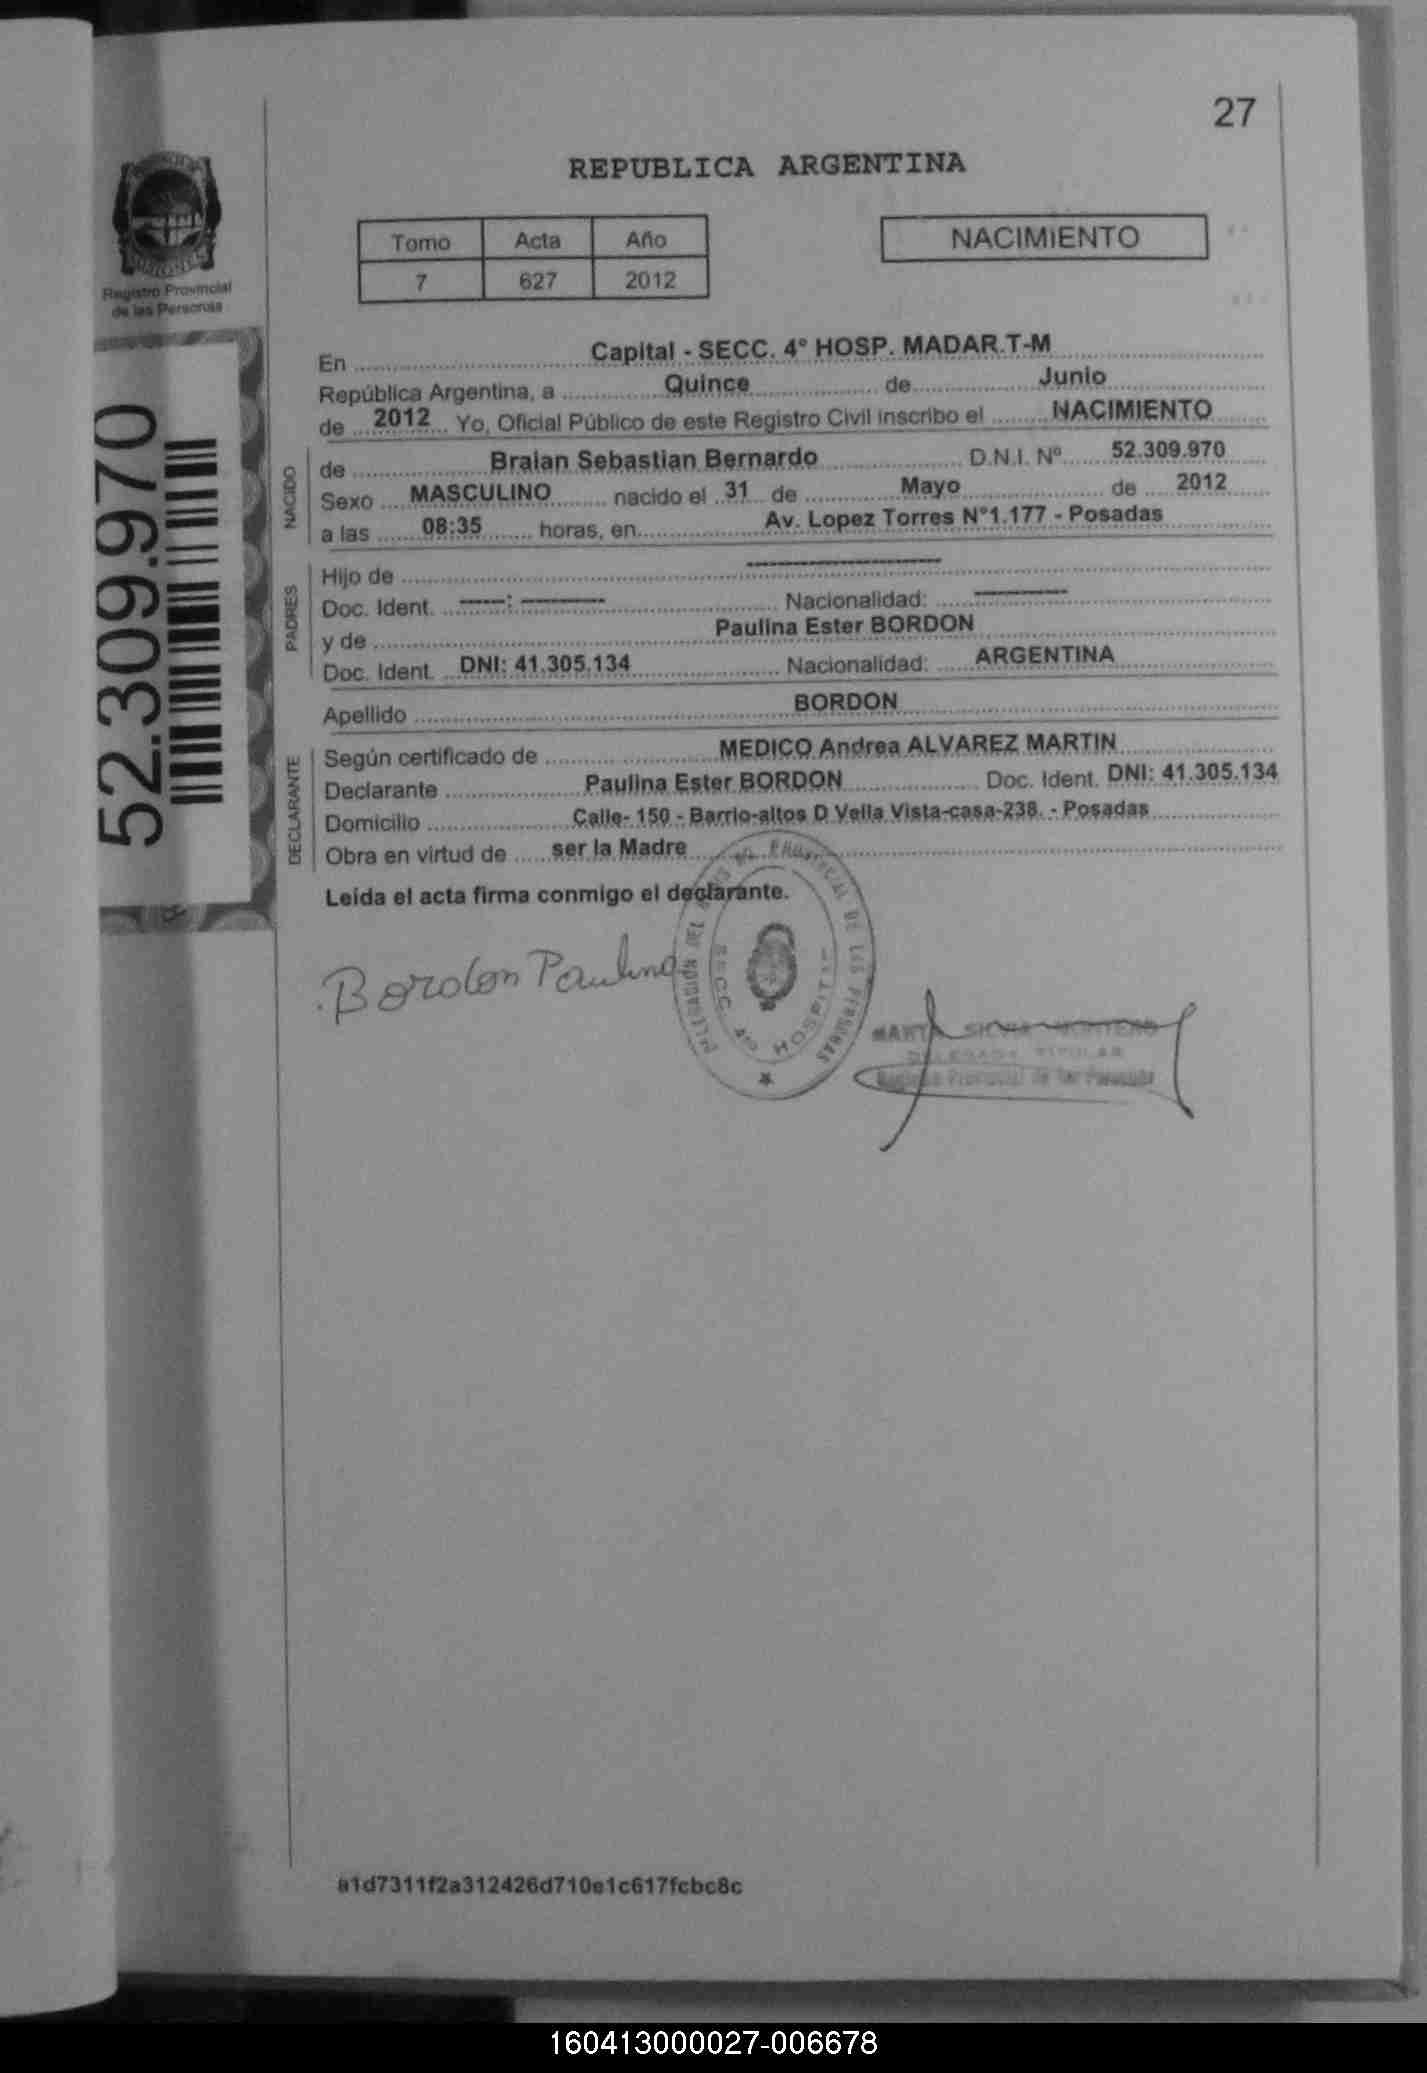 27
REPUBLICA ARGENTINA
Tomo Acta Año
7 627 2012
NACIMIENTO
MISIONES
Registro Provincial
de las Personas
52.309.970
En Capital - SECC. 4° HOSP. MADAR.T-M
República Argentina, a Quince de Junio
de 2012 Yo, Oficial Público de este Registro Civil inscribo el NACIMIENTO
NACIDO
de Braian Sebastian Bernardo D.N.I. Nº 52.309.970
Sexo MASCULINO nacido el 31 de Mayo de 2012
a las 08:35 horas, en Av. Lopez Torres N°1.177 - Posadas
PADRES
Hijo de --------------------
Doc. Ident. -----: --------- Nacionalidad: ----------
y de Paulina Ester BORDON
Doc. Ident. DNI: 41.305.134 Nacionalidad: ARGENTINA
Apellido BORDON
DECLARANTE
Según certificado de MEDICO Andrea ALVAREZ MARTIN
Declarante Paulina Ester BORDON Doc. Ident. DNI: 41.305.134
Domicilio Calle- 150 - Barrio-altos D Vella Vista-casa-238. - Posadas
Obra en virtud de ser la Madre
Leida el acta firma conmigo el declarante.
Bordon Paulina
DELEGACION DEL REGISTRO PROVINCIAL DE LAS PERSONAS
SECC. 4ta HOSPITAL
MARTA SILVIA MONTERO
DELEGADA TITULAR
Registro Provincial de las Personas
a1d7311f2a312426d710e1c617fcbc8c
160413000027-006678